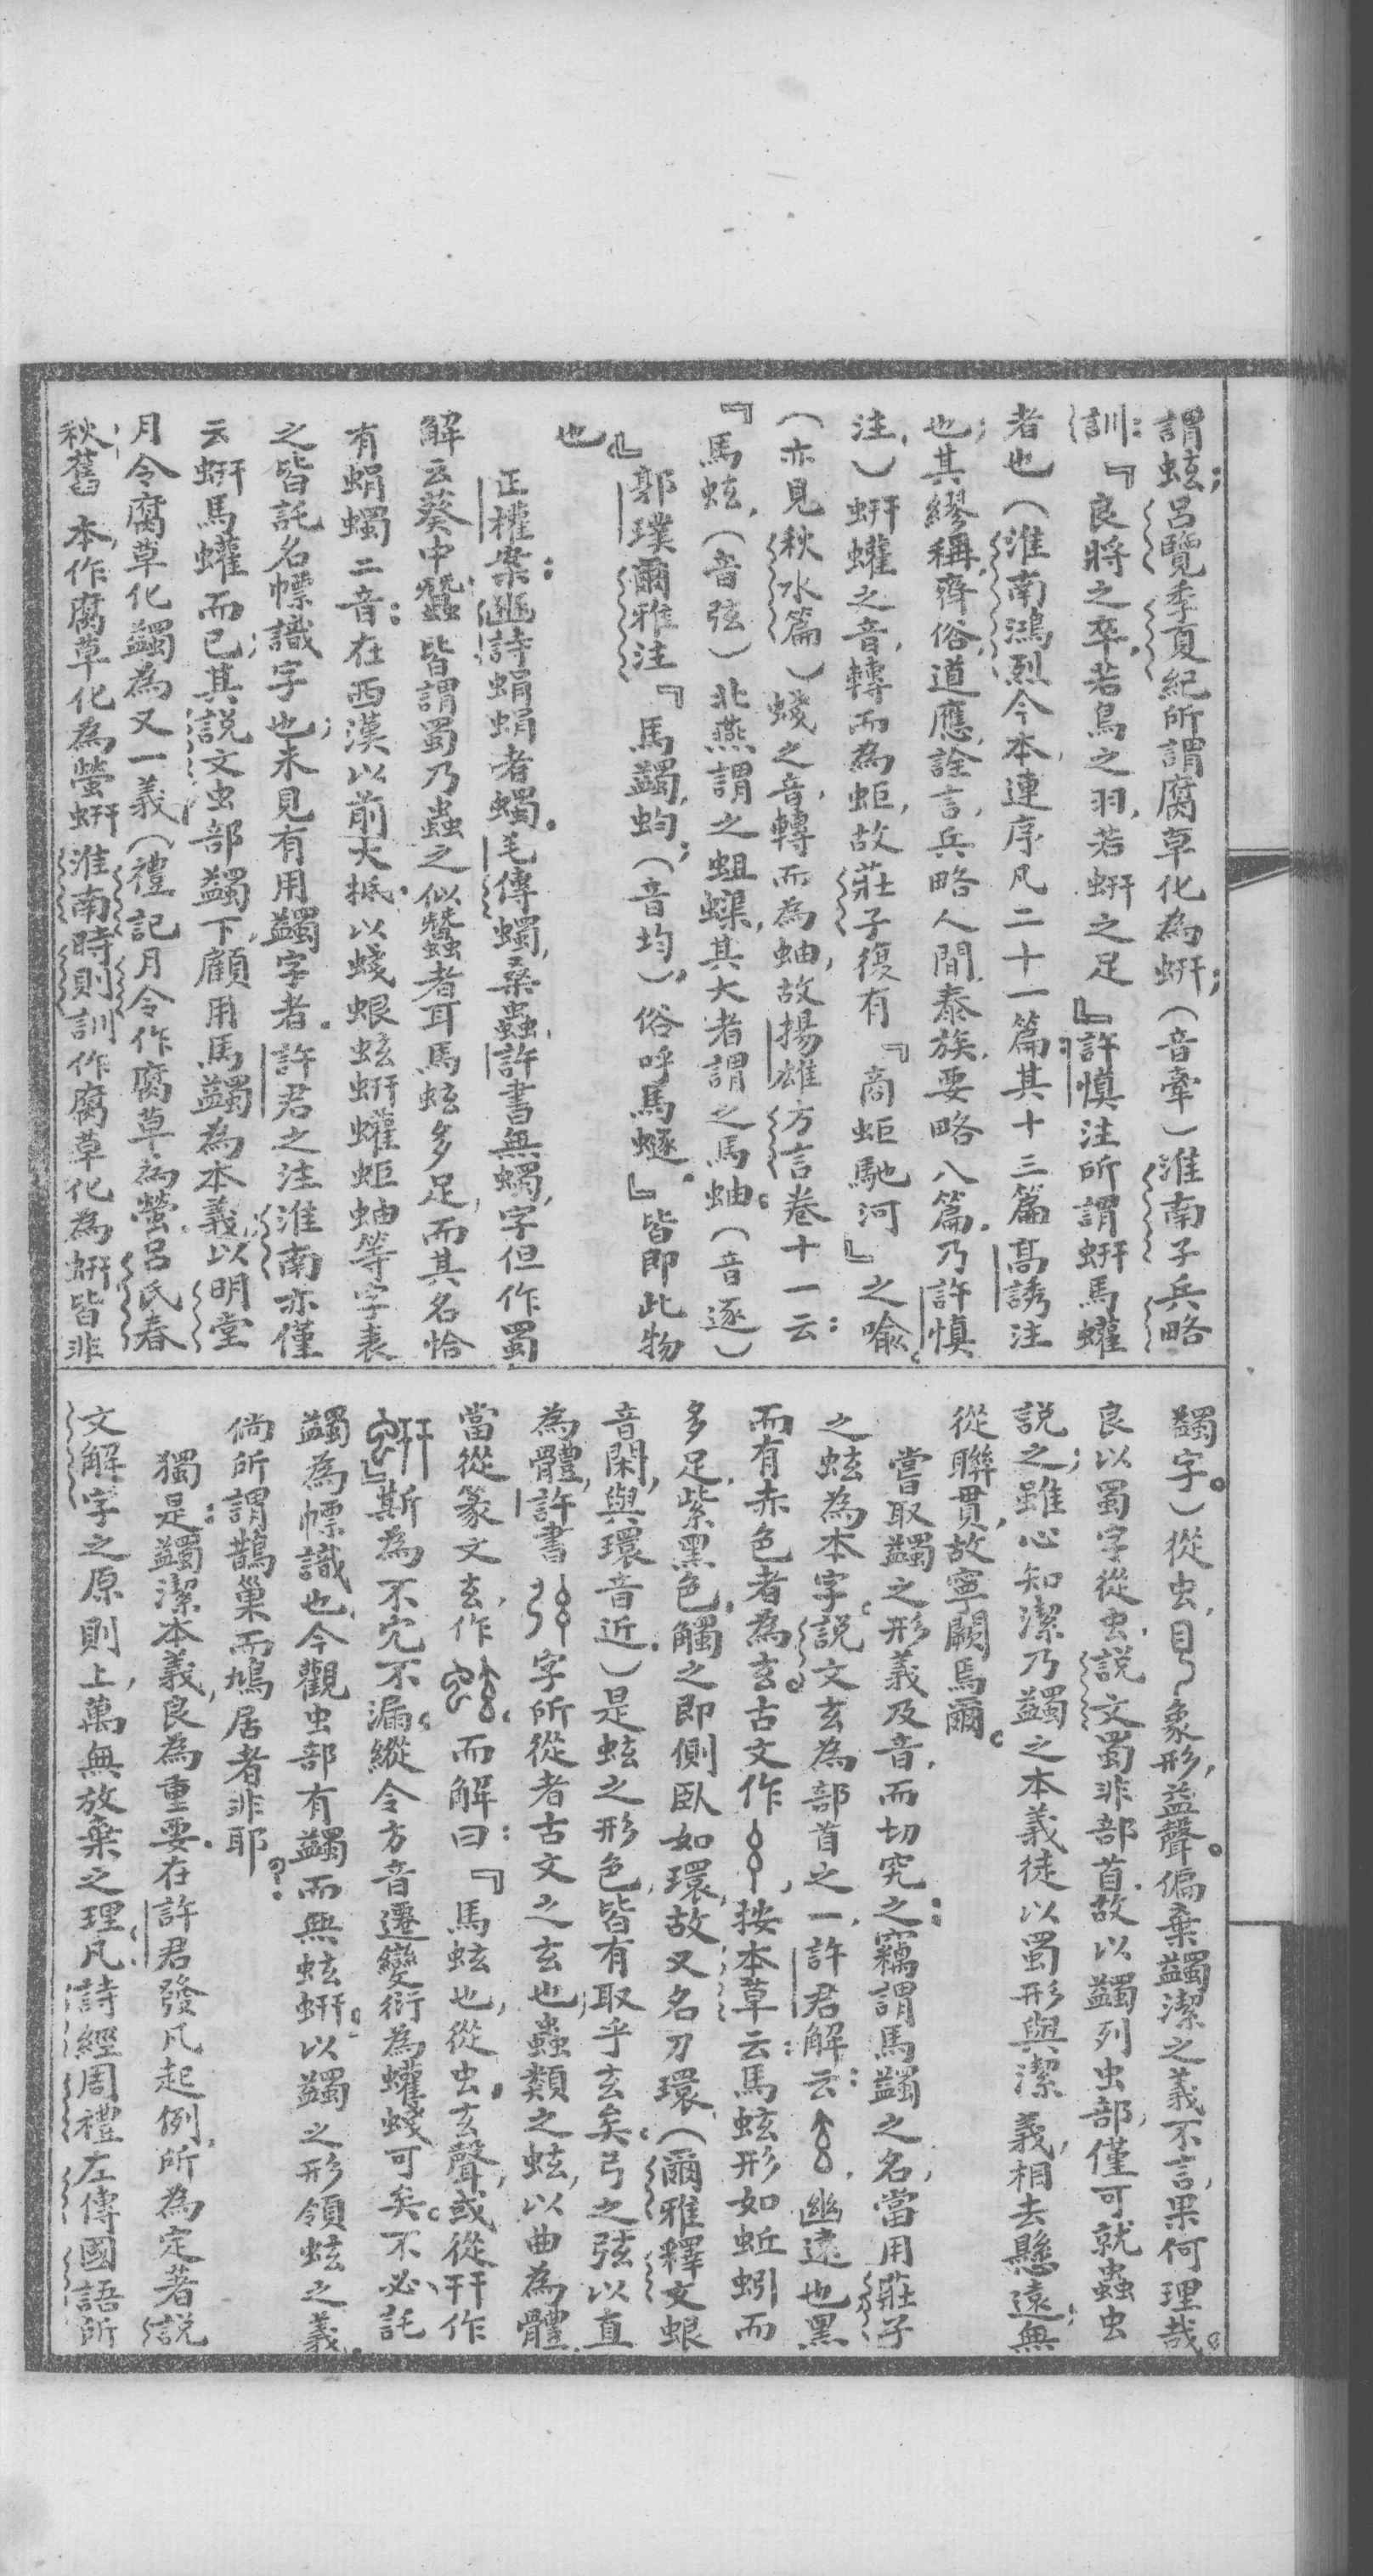 謂蚿；呂覽季夏紀所謂腐草化為蚈；（音牽）淮南子兵略
訓：『良將之卒，若鳥之羽，若蚈之足』許慎注所謂蚈馬蠸
者也（淮南鴻烈今本，連序凡二十一篇，其十三篇高誘注
也；其繆稱，齊俗，道應，詮言，兵略，人間，泰族，要略八篇，乃許慎
注，）蚈蠸之音，轉而為蚷，故莊子復有『商蚷馳河』之喻，
（亦見秋水篇）蝬之音，轉而為蚰，故揚雄方言卷十一云：
『馬蚿，（音弦）北燕謂之蛆蟝，其大者謂之馬蚰。（音逐）
』郭璞爾雅注『馬蠲，蚐；（音均，）俗呼馬蠽。』皆即此物
也。
正權案：豳詩蜎蜎者蠋。毛傳蠋，桑蟲，許書無蠋，字但作蜀
解云葵中蠶，皆謂蜀乃蟲之似蠶者耳馬蚿多足，而其名恰
有蜎蠋二音：在西漢以前大抵以蝬蛝蚿蚈蠸蚷蚰等字表
之皆託名幖識字也；未見有用蠲字者。許君之注淮南亦僅
云蚈馬蠸而已；其說文虫部蠲下，顧用馬蠲為本義，以明堂
月令腐草化蠲為又一義（禮記月令作腐草為螢，呂氏春
秋，舊本，作腐草化為螢蚈淮南時則訓作腐草化為蚈皆非
蠲字。）從虫，目象形，益聲。偏棄蠲潔之義不言，果何理哉。
良以蜀字從虫，說文蜀非部首，故以蠲列虫部，僅可就蟲虫
說之；雖心知潔乃蠲之本義徒以蜀形與潔義，相去懸遠，無
從聯貫，故寧闕焉爾。
嘗取蠲之形義及音，而切究之：竊謂馬蠲之名，當用莊子
之蚿為本字，說文玄為部首之一，許君解云：，幽遠也黑
而有赤色者為玄。古文作，按本草云：馬蚿形如蚯蚓而
多足，紫黑色，觸之即側臥如環，故又名刀環，（爾雅釋文蛝
音閑，與環音近，）是蚿之形色，皆有取乎玄矣。弓之弦以直
為體，許書字所從者古文之玄也；蟲類之蚿，以曲為體，
當從篆文玄，作，而解曰：『馬蚿也，從虫，玄聲，或從幵作
』斯為不宂不漏，縱令方音遷變衍為蠸蝬可矣。不必託
蠲為幖識也，今觀虫部有蠲而無蚿蚈。以蠲之形領蚿之義，
倘所謂鵲巢而鳩居者非耶？
獨是：蠲潔本義，良為重要，在許君發凡起例，所為定著說
文解字之原則上，萬無放棄之理，凡詩經周禮左傳國語所